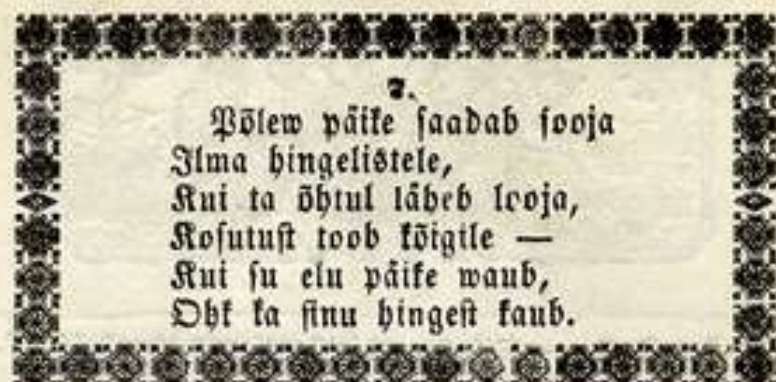 7.
Põlew päike saadab sooja
Ilma hingelistele,
Kui ta õhtul läheb looja,
Kosutust toob kõigile —
Kui su elu päike waub,
Ohk ka sinu hingest kaub.